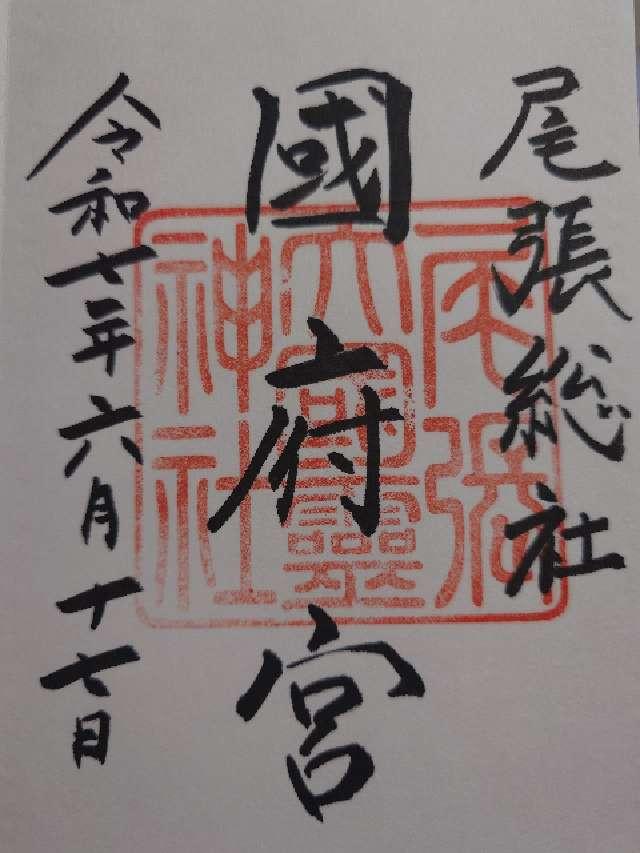 尾張総社
國府宮
令和七年六月十七日
尾張
大國霊
神社